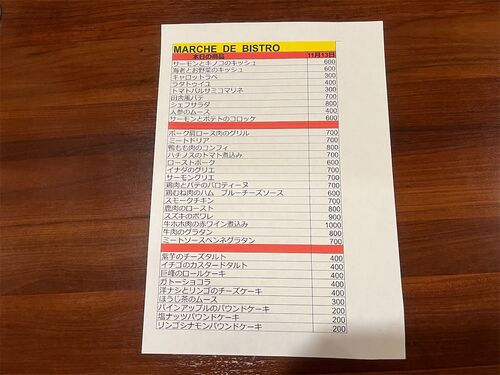 MARCHE DE BISTRO
本日の商品 11月13日
サーモンとキノコのキッシュ 600
海老とお野菜のキッシュ 600
キャロットラペ 300
ラタトゥイユ 400
トマトバルサミコマリネ 300
田舎風パテ 700
シェフサラダ 800
人参のムース 400
サーモンとポテトのコロッケ 600
ポーク肩ロース肉のグリル 700
ミートドリア 700
鴨もも肉のコンフィ 800
ハチノスのトマト煮込み 700
ローストポーク 600
イナダのグリエ 700
サーモングリエ 700
鶏肉とパテのバロティーヌ 700
鶏むね肉のハム ブルーチーズソース 600
スモークチキン 700
鹿肉のロースト 800
スズキのポワレ 900
牛ホホ肉の赤ワイン煮込み 1000
牛肉のグラタン 800
ミートソースペンネグラタン 700
紫芋のチーズタルト 400
イチゴのカスタードタルト 400
巨峰のロールケーキ 400
ガトーショコラ 400
洋ナシとリンゴのチーズケーキ 400
ほうじ茶のムース 300
パインアップルのパウンドケーキ 200
塩ナッツパウンドケーキ 200
リンゴシナモンパウンドケーキ 200